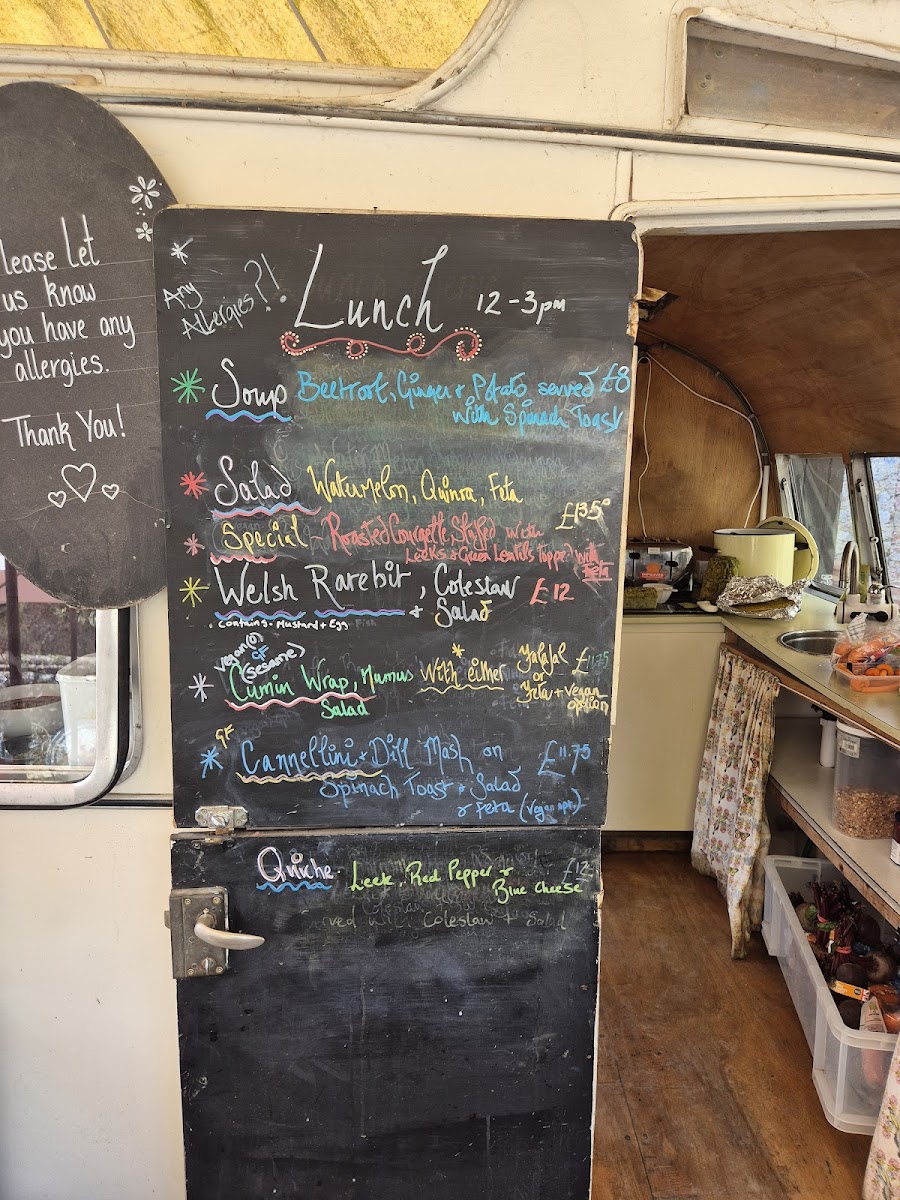 Please Let
us know
you have any
allergies.
Thank You!
Any
Allergies?!
Lunch 12-3pm
Soup Beetroot, Ginger + Potato served £8
with Spinach Toast
Salad Watermelon, Quinoa, Feta
£13.50
Special - Roasted Courgette Stuffed with
Leeks & Green Lentils topped with
feta
Welsh Rarebit, Coleslaw £12
+ Salad
Contains - Mustard + Egg
vegan(o)
GF
(sesame)
Cumin Wrap, Humus With either £11.75
Salad
or
Feta + vegan
option
GF
Cannellini + Dill Mash on £11.75
Spinach Toast + Salad
& feta (vegan opt.)
Quiche Leek, Red Pepper + £12
Blue Cheese
rved with Coleslaw + Salad